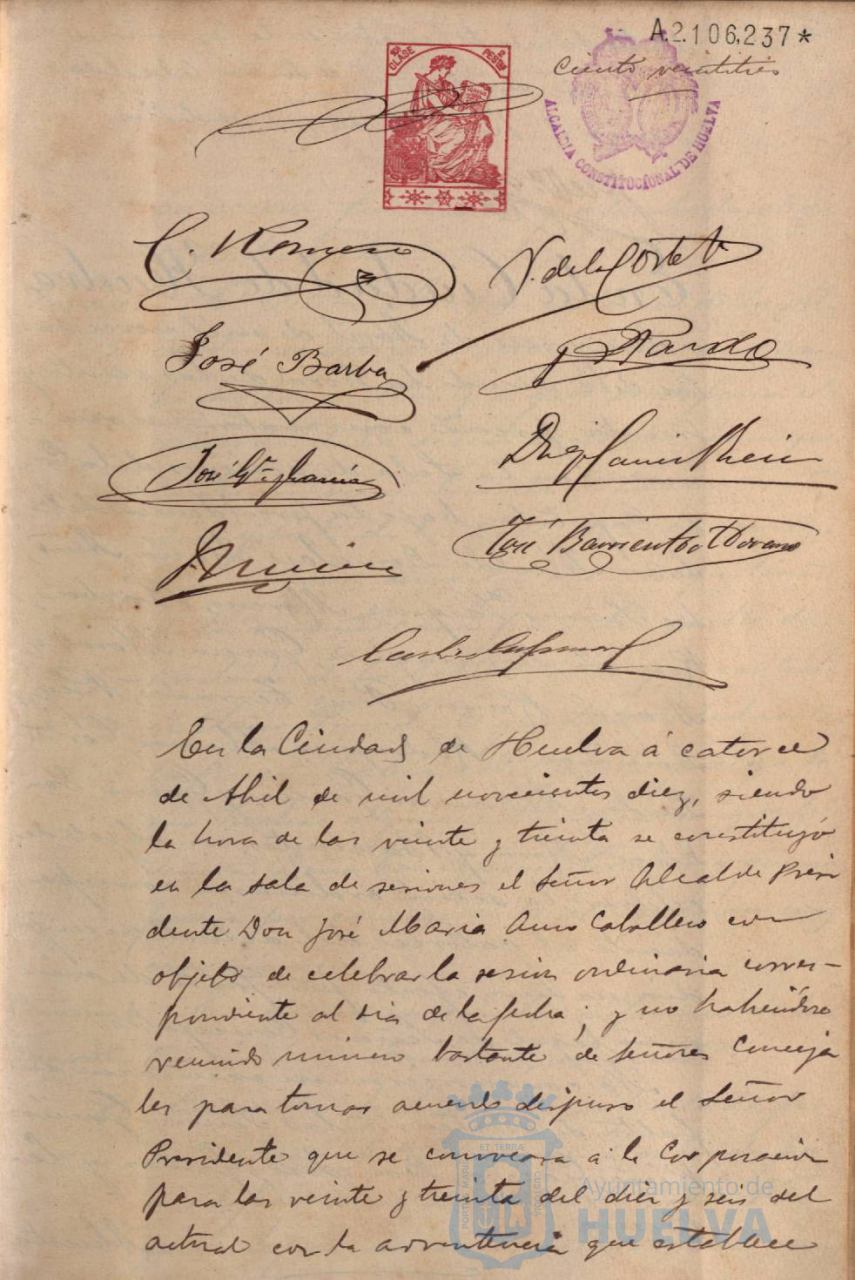 A.2.106,237*
Ciento veintitrés
CLASE
PESETAS
ALCALDIA CONSTITUCIONAL DE HUELVA
C. Romero
V. de la Corte
José Barba
Pardo
José
José Barrientos
En la Ciudad de Huelva á catorce
de Abril de mil novecientos diez, siendo
la hora de las veinte y treinta se constituyó
en la sala de sesiones el Señor Alcalde Presi
dente Don José Maria Amo Caballero con
objeto de celebrar la sesion ordinaria corres-
pondiente al dia de la fecha; y no habiendose
reunido número bastante de Señores Conceja
les para tomar acuerdo dispuso el Señor
Presidente que se convocara á la Corporacion
para las veinte y treinta del diez y seis del
actual con la advertencia que establece
Ayuntamiento de
HUELVA